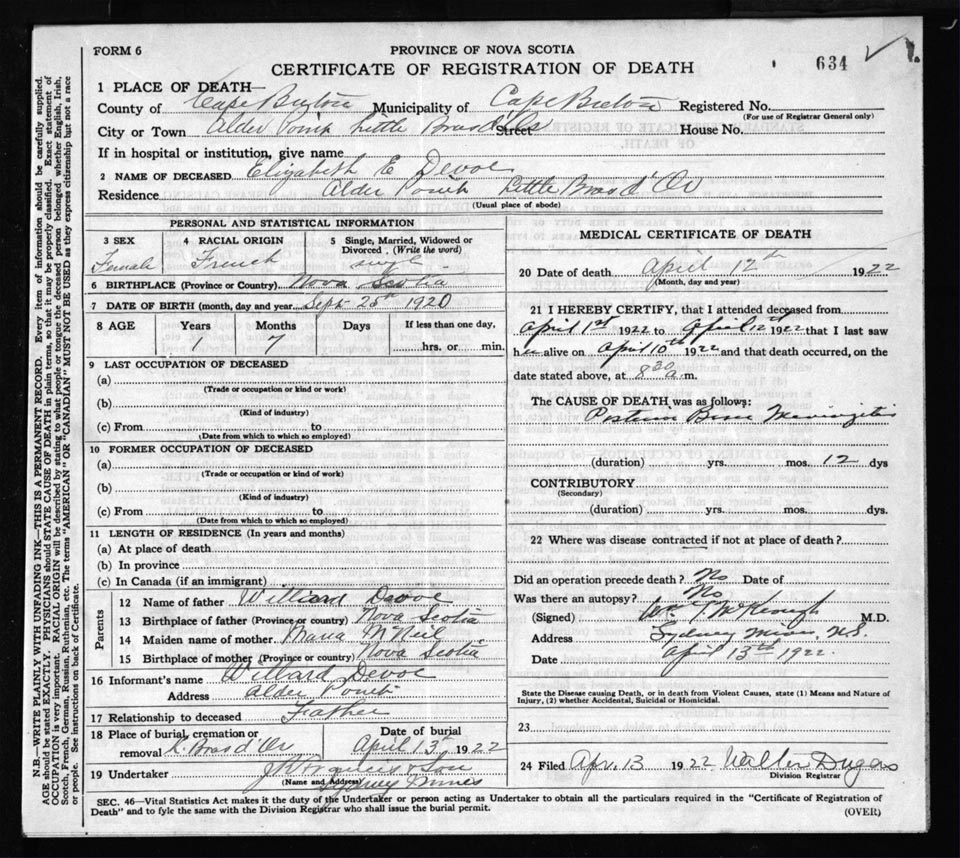 FORM 6
PROVINCE OF NOVA SCOTIA
CERTIFICATE OF REGISTRATION OF DEATH
634
1 PLACE OF DEATH—
County of Cape Breton Municipality of Cape Breton Registered No.
(For use of Registrar General only)
City or Town Alder Point Little Bras d'Or Street House No.
If in hospital or institution, give name
2 NAME OF DECEASED Elizabeth E Devoe
Residence Alder Point Little Bras d'Or
(Usual place of abode)
PERSONAL AND STATISTICAL INFORMATION
3 SEX 4 RACIAL ORIGIN 5 Single, Married, Widowed or Divorced. (Write the word)
Female French single
6 BIRTHPLACE (Province or Country) Nova Scotia
7 DATE OF BIRTH (month, day and year) Sept 25th 1920
8 AGE Years Months Days If less than one day,
1 7 hrs. or min.
9 LAST OCCUPATION OF DECEASED
(a)
(Trade or occupation or kind or work)
(b)
(Kind of industry)
(c) From to
(Date from which to which so employed)
10 FORMER OCCUPATION OF DECEASED
(a)
(Trade or occupation or kind of work)
(b)
(Kind of industry)
(c) From to
(Date from which to which so employed)
11 LENGTH OF RESIDENCE (In years and months)
(a) At place of death
(b) In province
(c) In Canada (if an immigrant)
Parents
12 Name of father Willard Devoe
13 Birthplace of father (Province or country) Nova Scotia
14 Maiden name of mother Maria McNeil
15 Birthplace of mother (Province or country) Nova Scotia
16 Informant's name Willard Devoe
Address Alder Point
17 Relationship to deceased Father
18 Place of burial, cremation or removal L. Bras d'Or Date of burial April 13th 1922
19 Undertaker & Son
(Name and Address) Sydney Mines
MEDICAL CERTIFICATE OF DEATH
20 Date of death April 12th 1922
(Month, day and year)
21 I HEREBY CERTIFY, that I attended deceased from
April 1st 1922 to April 12th 1922 that I last saw
her alive on April 10th 1922 and that death occurred, on the
date stated above, at 8 30 a.m.
The CAUSE OF DEATH was as follows:
Posterior Base Meningitis
(duration) yrs. mos. 12 dys
CONTRIBUTORY
(Secondary)
(duration) yrs. mos. dys.
22 Where was disease contracted if not at place of death?
Did an operation precede death? No Date of
Was there an autopsy? No
(Signed) McKeough M.D.
Address Sydney Mines, N.S.
Date April 13th 1922.
State the Disease causing Death, or in death from Violent Causes, state (1) Means and Nature of
Injury, (2) whether Accidental, Suicidal or Homicidal.
23
24 Filed Apr. 13 1922 Walter Dugas
Division Registrar
SEC. 46—Vital Statistics Act makes it the duty of the Undertaker or person acting as Undertaker to obtain all the particulars required in the "Certificate of Registration of
Death" and to fyle the same with the Division Registrar who shall issue the burial permit.
(OVER)
N.B.—WRITE PLAINLY WITH UNFADING INK—THIS IS A PERMANENT RECORD. Every item of information should be carefully supplied.
AGE should be stated EXACTLY. PHYSICIANS should STATE CAUSE OF DEATH in plain terms, so that it may be properly classified. Exact statement of
OCCUPATION is very important. RACIAL ORIGIN will be described by stating to what people or tongue the deceased person belonged whether English, Irish,
Scotch, French, German, Russian, Ruthenian, etc. The terms "AMERICAN" OR "CANADIAN" MUST NOT BE USED as they express citizenship but not a race
or people. See instructions on back of Certificate.